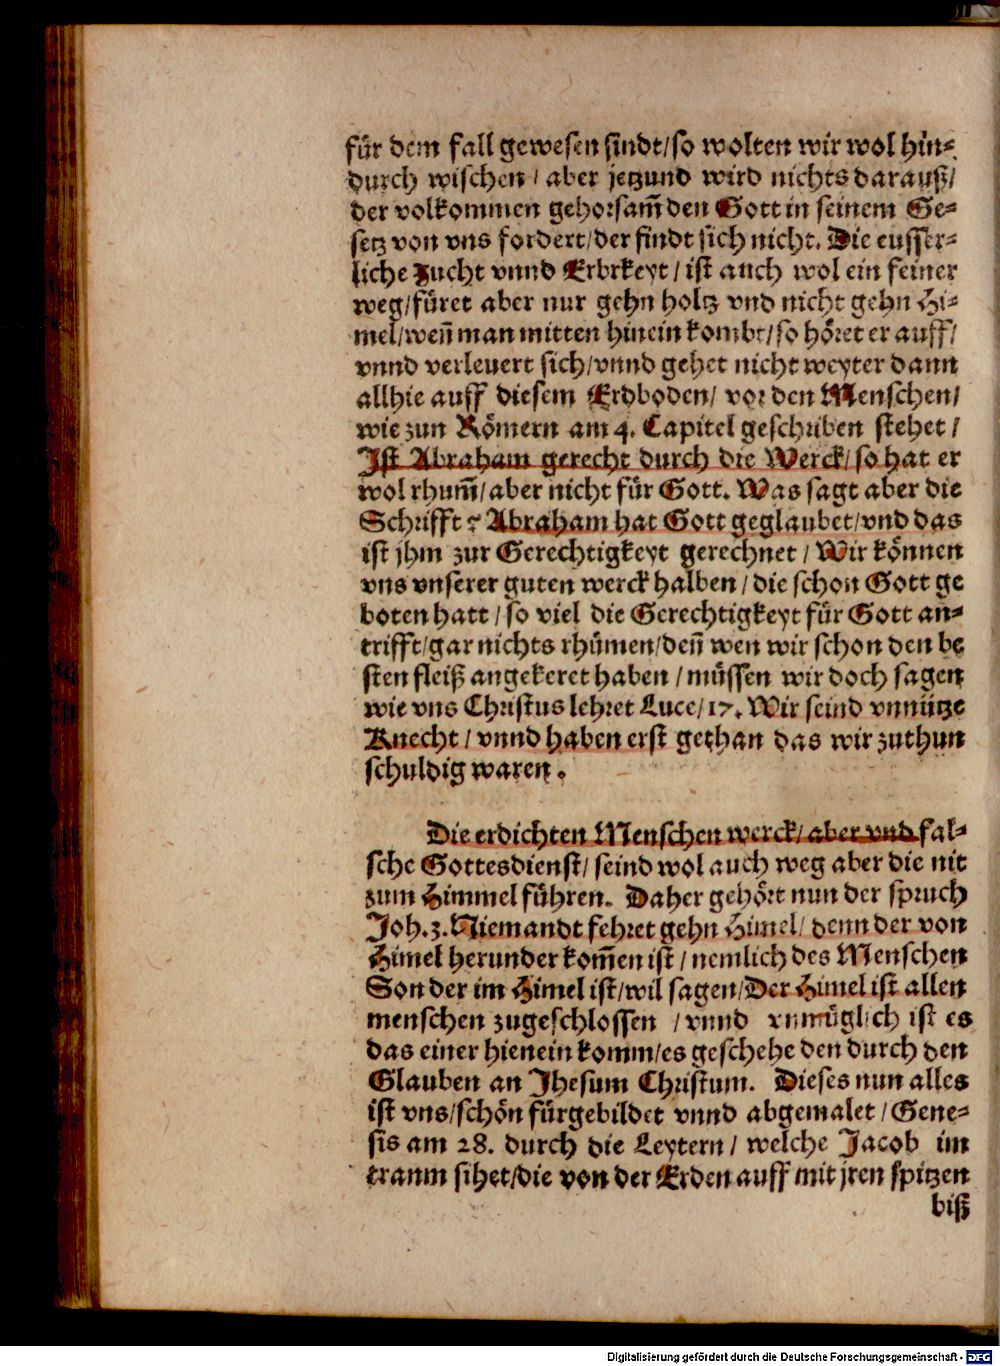 für dem fall gewesen sindt/so wolten wir wol hin-
durch wischen / aber jetzund wird nichts darauß/
der volkommen gehorsam̃ den Gott in seinem Ge-
setz von vns fordert/der findt sich nicht. Die eusser-
liche zucht vnnd Erbrkeyt / ist auch wol ein feiner
weg/füret aber nur gehn holtz vnd nicht gehn Hi-
mel/weñ man mitten hinein kombt/so höret er auff/
vnnd verleuert sich/vnnd gehet nicht weyter dann
allhie auff diesem Erdboden/ vor den Menschen/
wie zun Römern am 4. Capitel geschriben stehet /
Ist Abraham gerecht durch die Werck/ so hat er
wol rhum̃/aber nicht für Gott. Was sagt aber die
Schrifft ? Abraham hat Gott geglaubet/vnd das
ist jhm zur Gerechtigkeyt gerechnet / Wir können
vns vnserer guten werck halben / die schon Gott ge
boten hatt / so viel die Gerechtigkeyt für Gott an-
trifft/gar nichts rhümen/deñ wen wir schon den be
sten fleiß angekeret haben / müssen wir doch sagen
wie vns Christus lehret Luce/17. Wir seind vnnütze
Knecht / vnnd haben erst gethan das wir zuthun
schuldig waren .
Die erdichten Menschen werck/ aber vnd fal-
sche Gottesdienst/ seind wol auch weg aber die nit
zum Himmel führen. Daher gehört nun der spruch
Joh.3. Niemandt fehret gehn Himel/ denn der von
Himel herunder kom̃en ist / nemlich des Menschen
Son der im Himel ist/wil sagen/Der Himel ist allen
menschen zugeschlossen / vnnd vnmüglich ist es
das einer hienein komm/es geschehe den durch den
Glauben an Jhesum Christum. Dieses nun alles
ist vns/schön fürgebildet vnnd abgemalet / Gene-
sis am 28. durch die Leytern / welche Jacob im
traum sihet/die von der Erden auff mit jren spitzen
biß
Digitalisierung gefördert durch die Deutsche Forschungsgemeinschaft - DFG